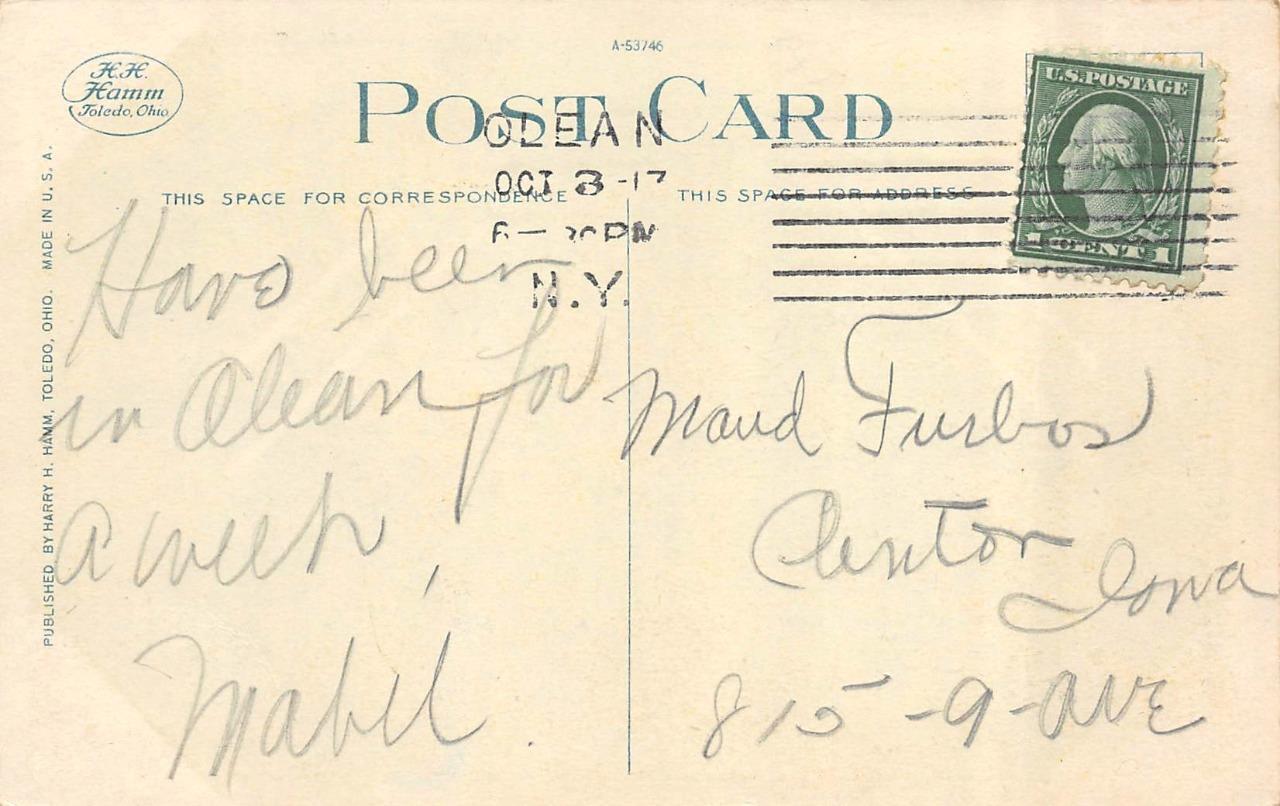 A-53746
H.H.
Hamm
Toledo, Ohio
POST CARD
U.S. POSTAGE
1 CENT 1
OLEAN
OCT 3 -17
PM
N.Y.
THIS SPACE FOR CORRESPONDENCE
THIS SPACE FOR ADDRESS
PUBLISHED BY HARRY H. HAMM, TOLEDO, OHIO. MADE IN U. S. A.
Have been
in Olean for
a week,
Mabel
Maud Furbos
Clinton
Iowa
815-9-ave